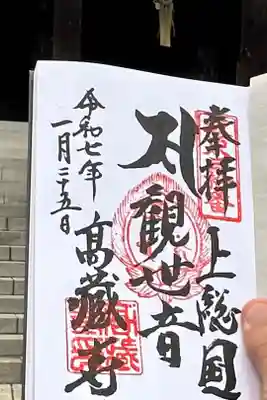 奉拝
上総国
正観世音
高藏寺
令和七年
一月二十五日